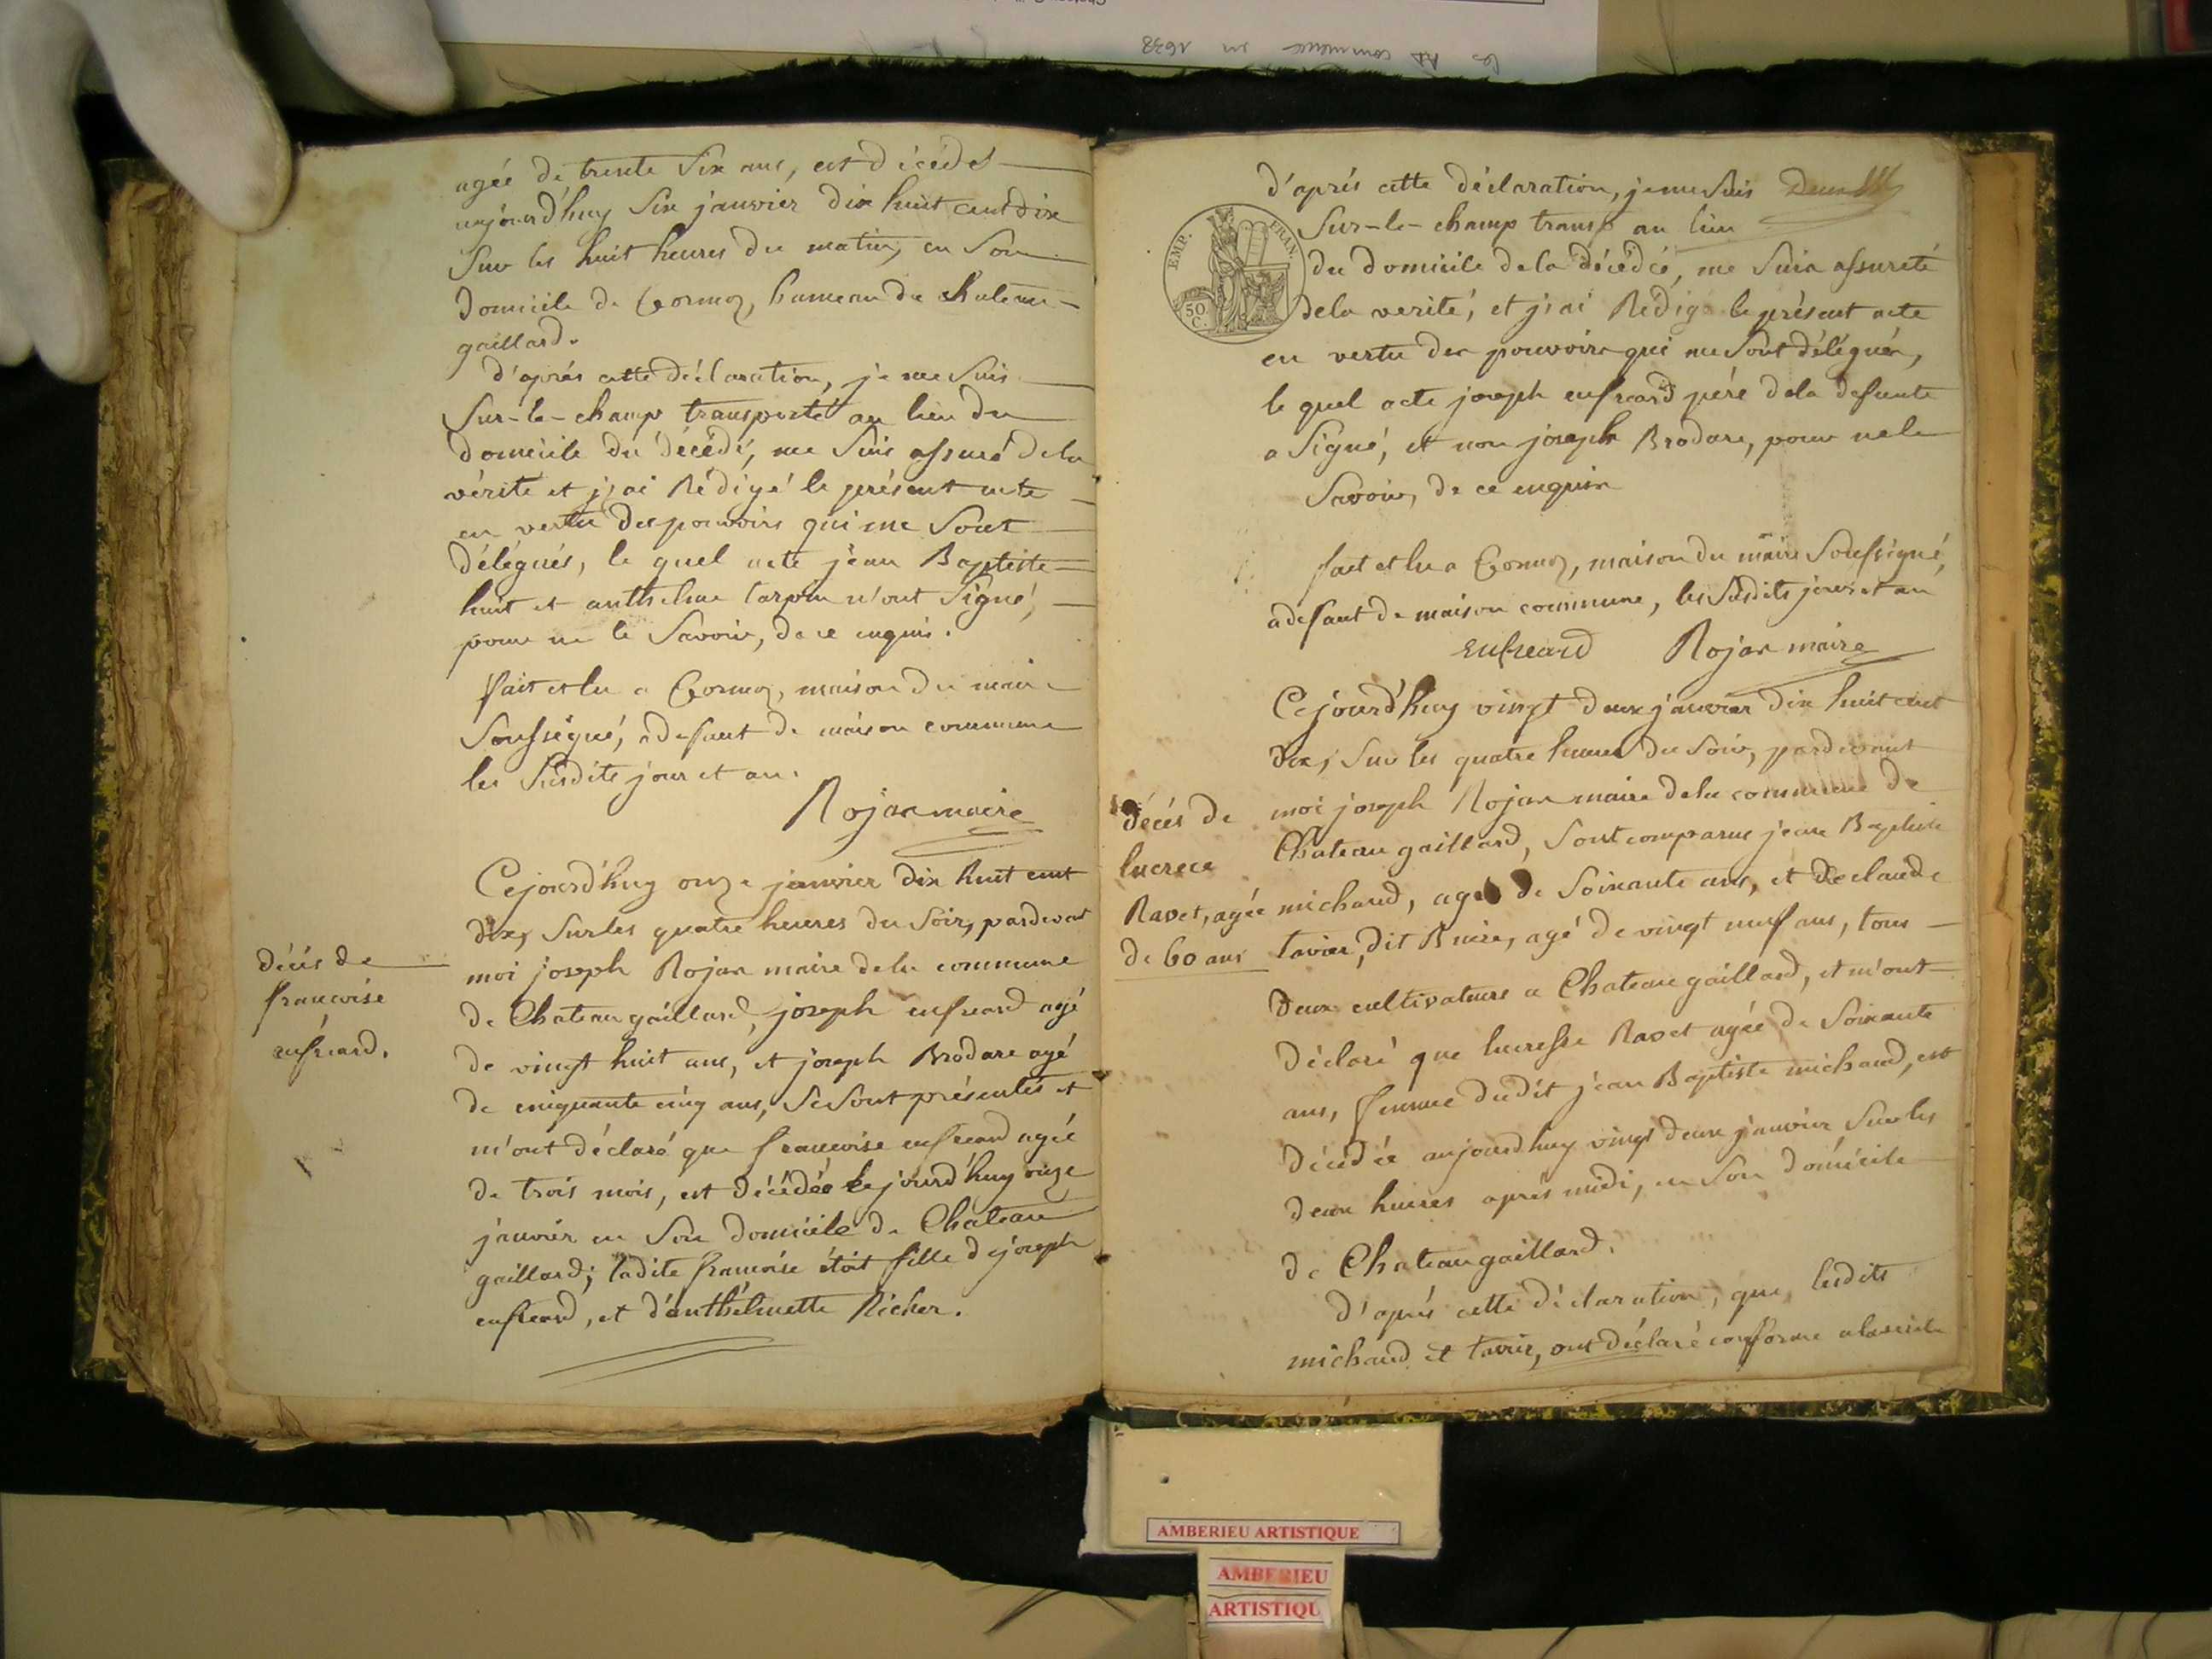 les RP commence en 1638
agée de trente Six ans, est décédé
aujourd'huy Six janvier dix huit cent dix
Sur les huit heures du matin, en Son
Domicile de Cormoz, hameau de chateau-
gaillard.
d'aprés cette déclaration, je me Suis
Sur-le-champ transporté au lieu du
domicile du décédé, me Suis assuré dela
vérité et j'ai Rédigé le présent acte
en vertu des pouvoirs qui me Sont
délégués, le quel acte jean Baptiste
huit et anthelme tarpin n'ont Signé,
pour ne le Savoir, de ce enquis.
fait et lu a Cormoz, maison du maire
Soussigné, adefaut de maison commune
les Susdits jour et an.
Rojar maire
Cejourd'huy onze janvier dix huit cent
dix, Sur les quatre heures du Soir, pardevat
décés de
francoise
enfreard.
moi joseph Rojar maire dela commune
de Chateau gaillard, joseph enfreard agé
de vingt huit ans, et joseph Brodare agé
de cinquante cinq ans, Se Sont présentés et
m'ont déclaré que francoise enfreard agée
de trois mois, est décédée cejourd'huy onze
janvier en Son domicile de Chateau
gaillard; ladite francoise étoit fille de joseph
enfreard, et d'anthelmette Richer.
d'aprés cette déclaration, je me Suis
Sur-le-champ transp au lieu
EMP. FRAN.
50 C.
du domicile dela décédée, me Suis assureté
dela verité, et j'ai Rédigé le présent acte
en vertu des pouvoirs qui me Sont délégués,
le quel acte joseph enfreard pére dela defunte
a Signé, et non joseph Brodare, pour ne le
Savoir, de ce enquis
fait et lu a Cormoz, maison du maire Soussigné,
adefaut de maison commune, les Susdits jour et an
enfreard Rojar maire
Cejourd'huy vingt deux janvier dix huit cent
dix, Sur les quatre heures du Soir, pardevant
décés de
lucrece
Ravet, agée
de 60 ans
moi joseph Rojar maire dela commune de
Chateau gaillard, Sont comparus jean Baptiste
michaud, agé de Soixante ans, et claude
tavier, dit Buire, agé de vingt neuf ans, tous
deux cultivateurs a Chateau gaillard, et m'ont
déclaré que lucresse Ravet agée de Soixante
ans, femme dudit jean Baptiste michaud, est
décédée aujourd'huy vingt deux janvier Sur les
deux heures aprés midi, en Son domicile
de Chateau gaillard.
d'aprés cette déclaration, que lesdits
michaud et tavier, ont déclaré conforme alaverité
AMBERIEU ARTISTIQUE
AMBERIEU
ARTISTIQU